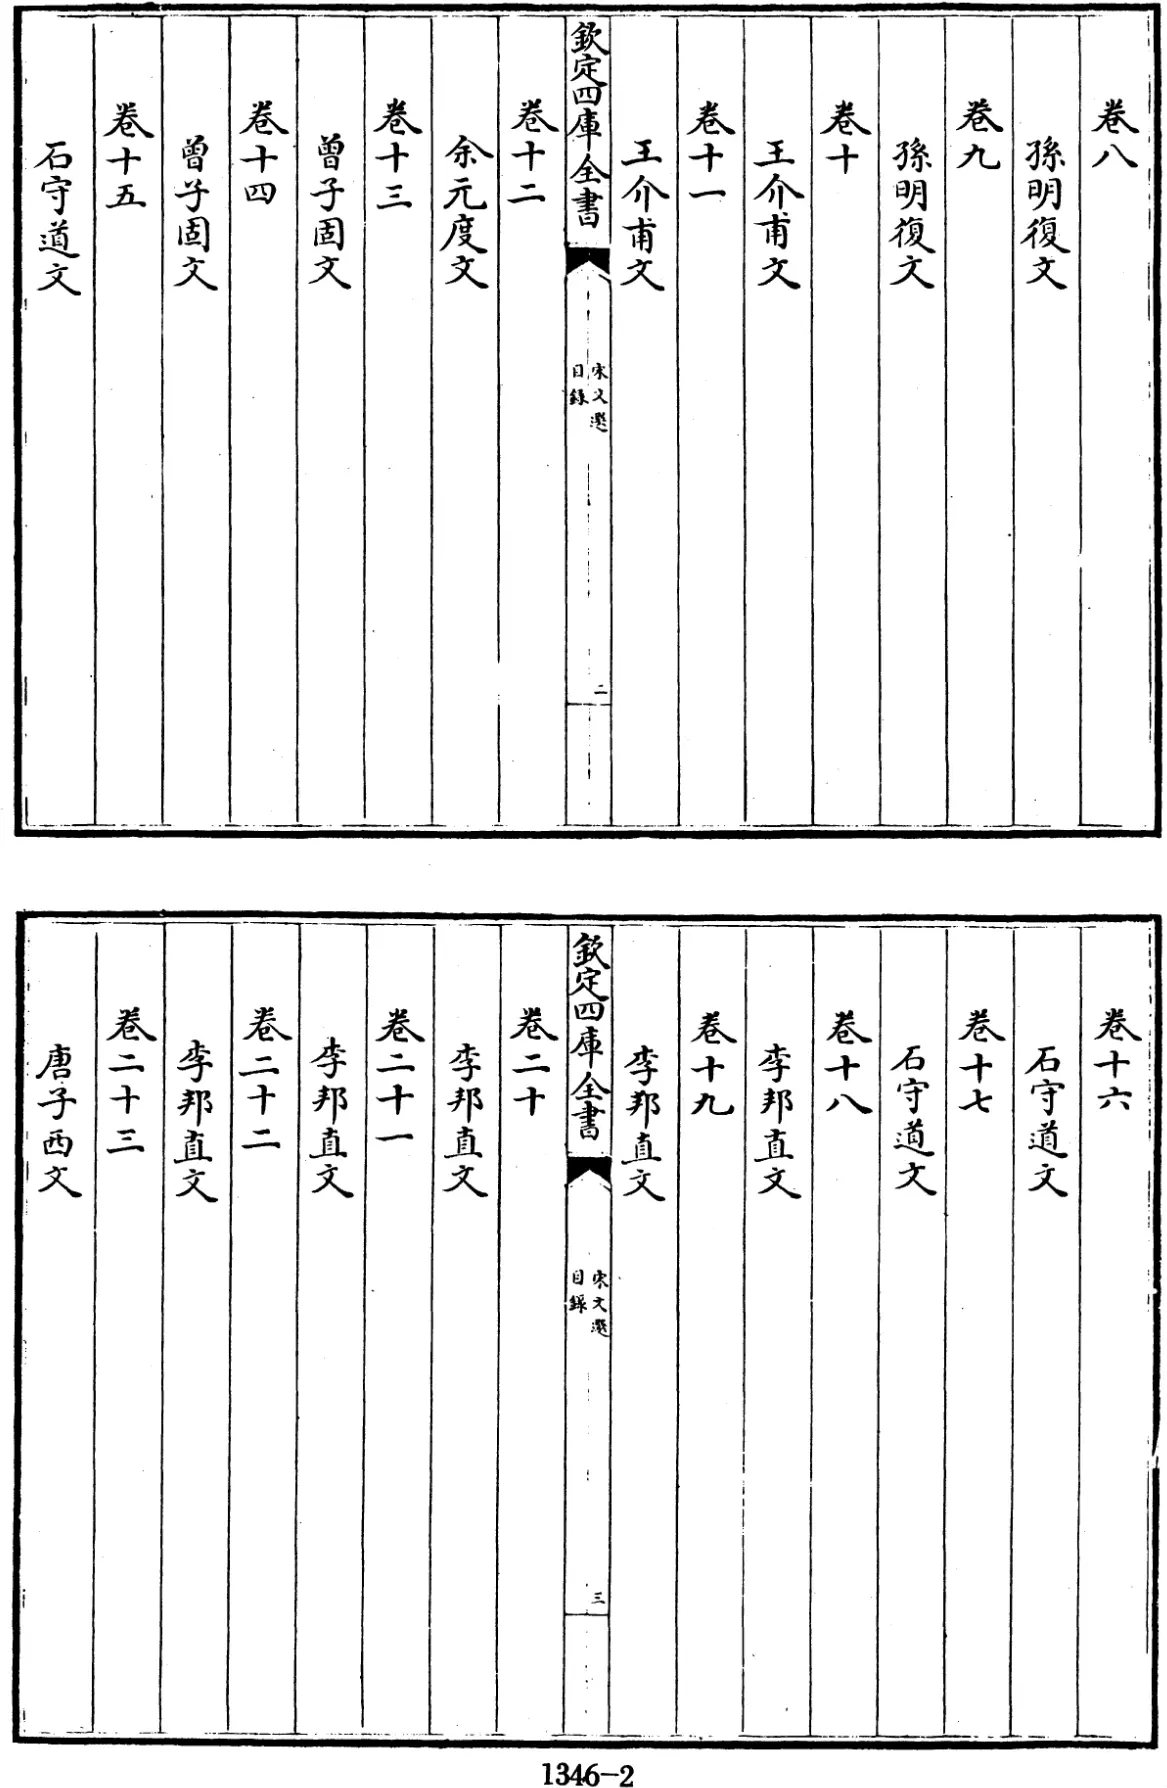 卷八
孫明復文
卷九
孫明復文
卷十
王介甫文
卷十一
王介甫文
欽定四庫全書
宋文選
目錄
二
卷十二
余元度文
卷十三
曾子固文
卷十四
曾子固文
卷十五
石守道文
卷十六
石守道文
卷十七
石守道文
卷十八
李邦直文
卷十九
李邦直文
欽定四庫全書
宋文選
目錄
三
卷二十
李邦直文
卷二十一
李邦直文
卷二十二
李邦直文
卷二十三
唐子西文
1346-2